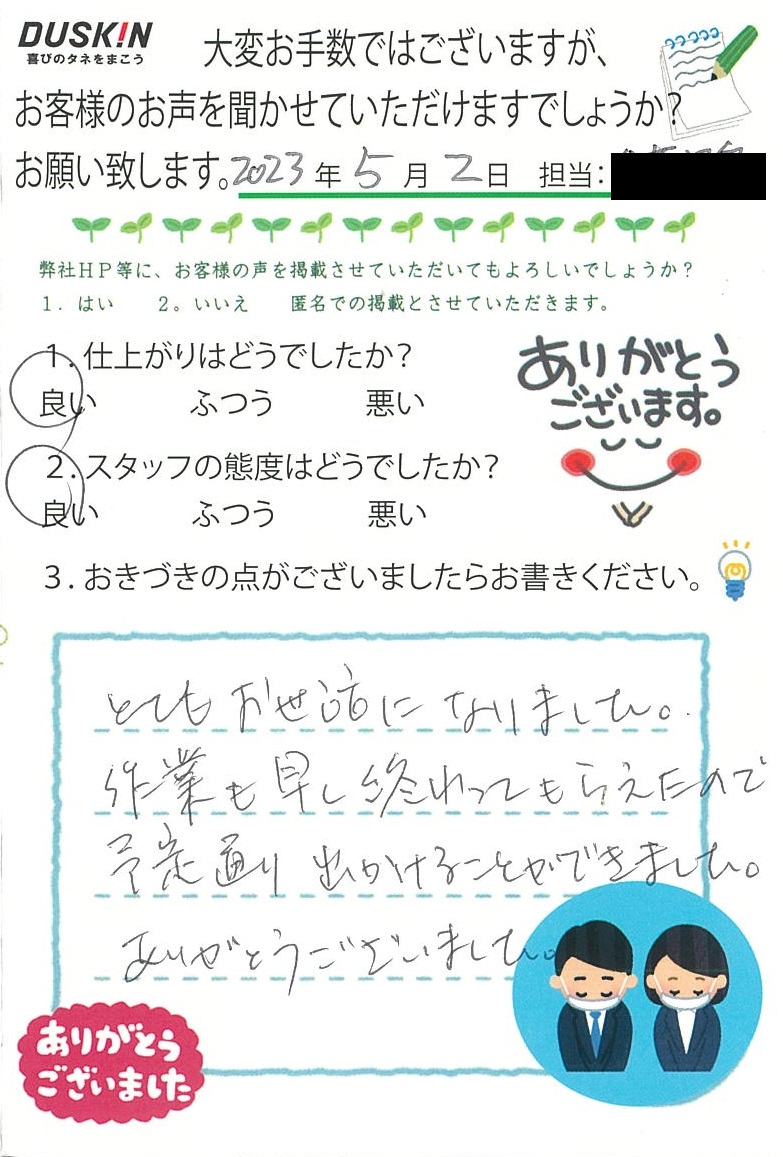 DUSKIN
喜びのタネをまこう
大変お手数ではございますが、
お客様のお声を聞かせていただけますでしょうか?
お願い致します。2023年5月2日 担当:
弊社HP等に、お客様の声を掲載させていただいてもよろしいでしょうか?
1. はい 2。いいえ 匿名での掲載とさせていただきます。
1. 仕上がりはどうでしたか?
良い ふつう 悪い
ありがとう
ございます。
2. スタッフの態度はどうでしたか?
良い ふつう 悪い
3. おきづきの点がございましたらお書きください。
とてもお世話になりました。
作業も早し終わってもらえたので
予定通り出かけることができました。
ありがとうございました。
ありがとう
ございました